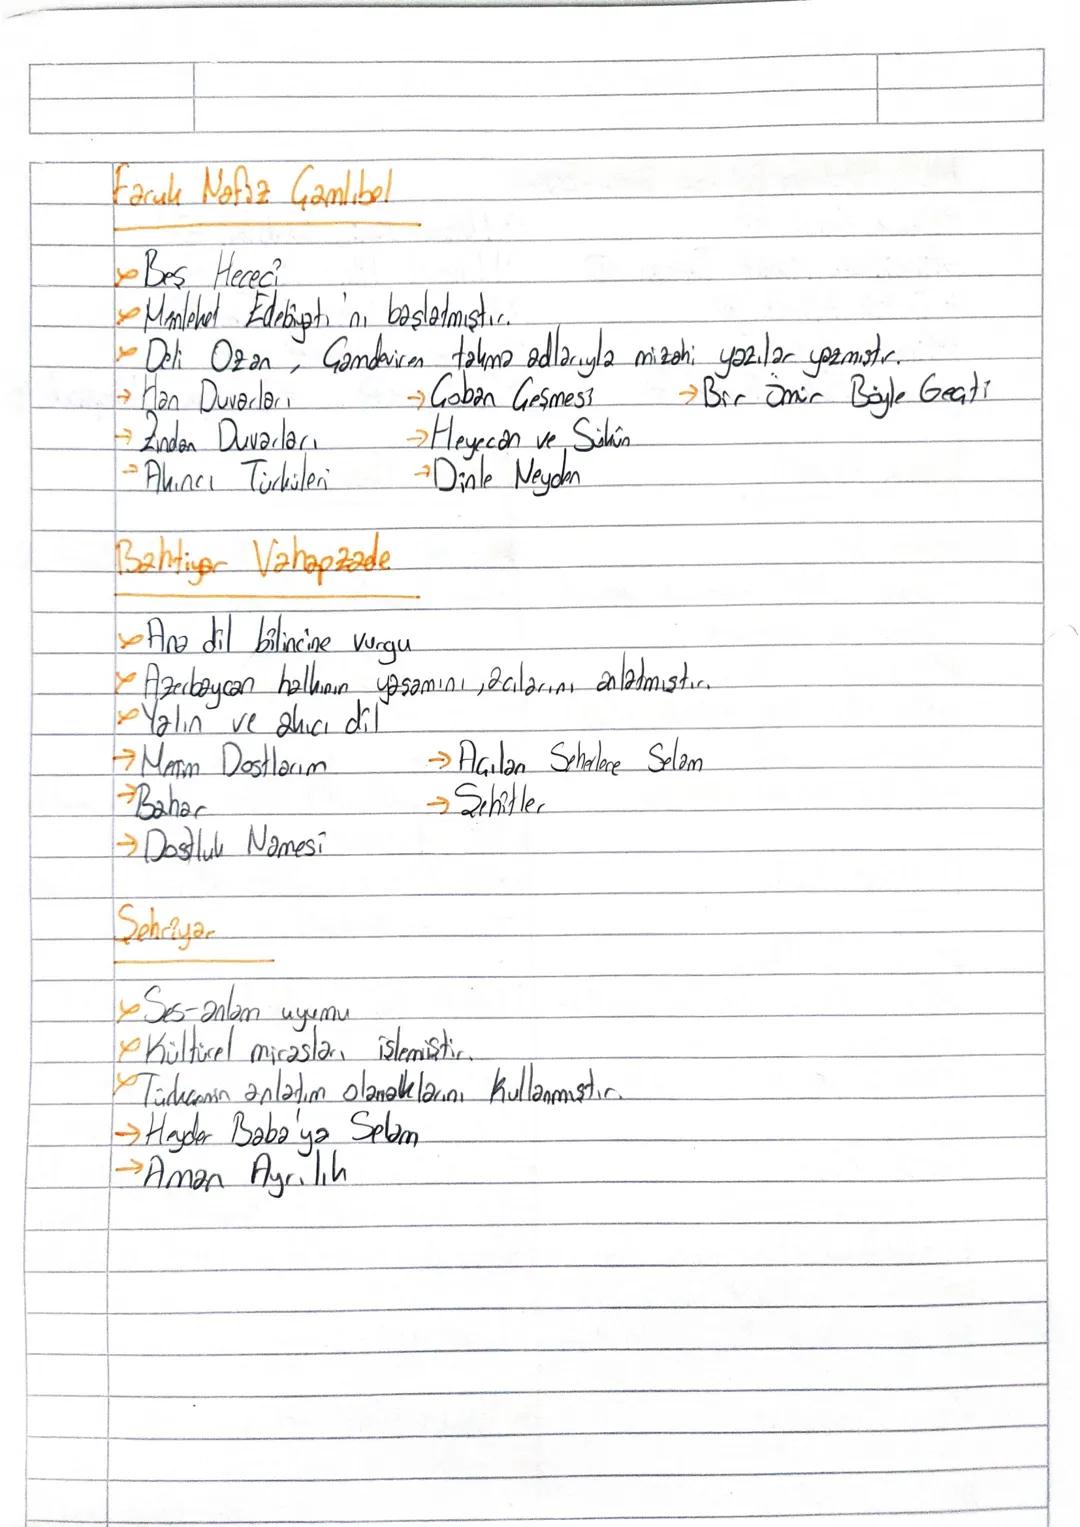 Faruk Nafiz Çamlıbel
Beş Hececi
Memleket Edebiyatı'nı başlatmıştır.
Deli Ozan, Çamdeviren takma adlarıyla mizahi yazılar yazmıştır.
→ Han Duvarları → Çoban Çeşmesi → Bir Ömür Böyle Geçti
→ Zindan Duvarları → Heyecan ve Sükûn
→ Akıncı Türküleri → Dinle Neyden
Bahtiyar Vahapzade
Ana dil bilincine vurgu
Azerbaycan halkının yaşamını, acılarını anlatmıştır.
Yalın ve akıcı dil
→ Menim Dostlarım → Açılan Seherlere Selam
→ Bahar → Şehitler
→ Dostluk Namesi
Şehriyar
Ses-anlam uyumu
Kültürel mirasları işlemiştir.
Türkçenin anlatım olanaklarını kullanmıştır.
→ Heyder Baba'ya Selam
→ Aman Ayrılık